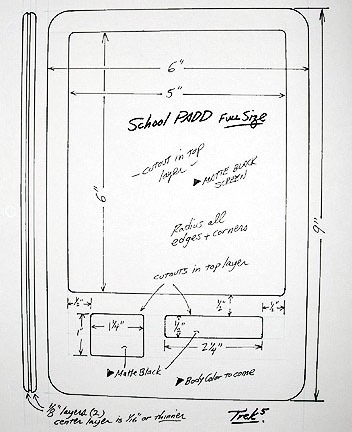 6"
5"
School PADD Full Size
cutout in top
layer
▶ Matte Black
Screen
6"
9"
Radius all
edges + corners
cutouts in top layer
½"
½"
½"
1"
1¼"
½"
2¼"
▶ Matte Black
▶ Body Color to come
⅛" layers (2)
center layer is 1/16" or thinner
Trek 5